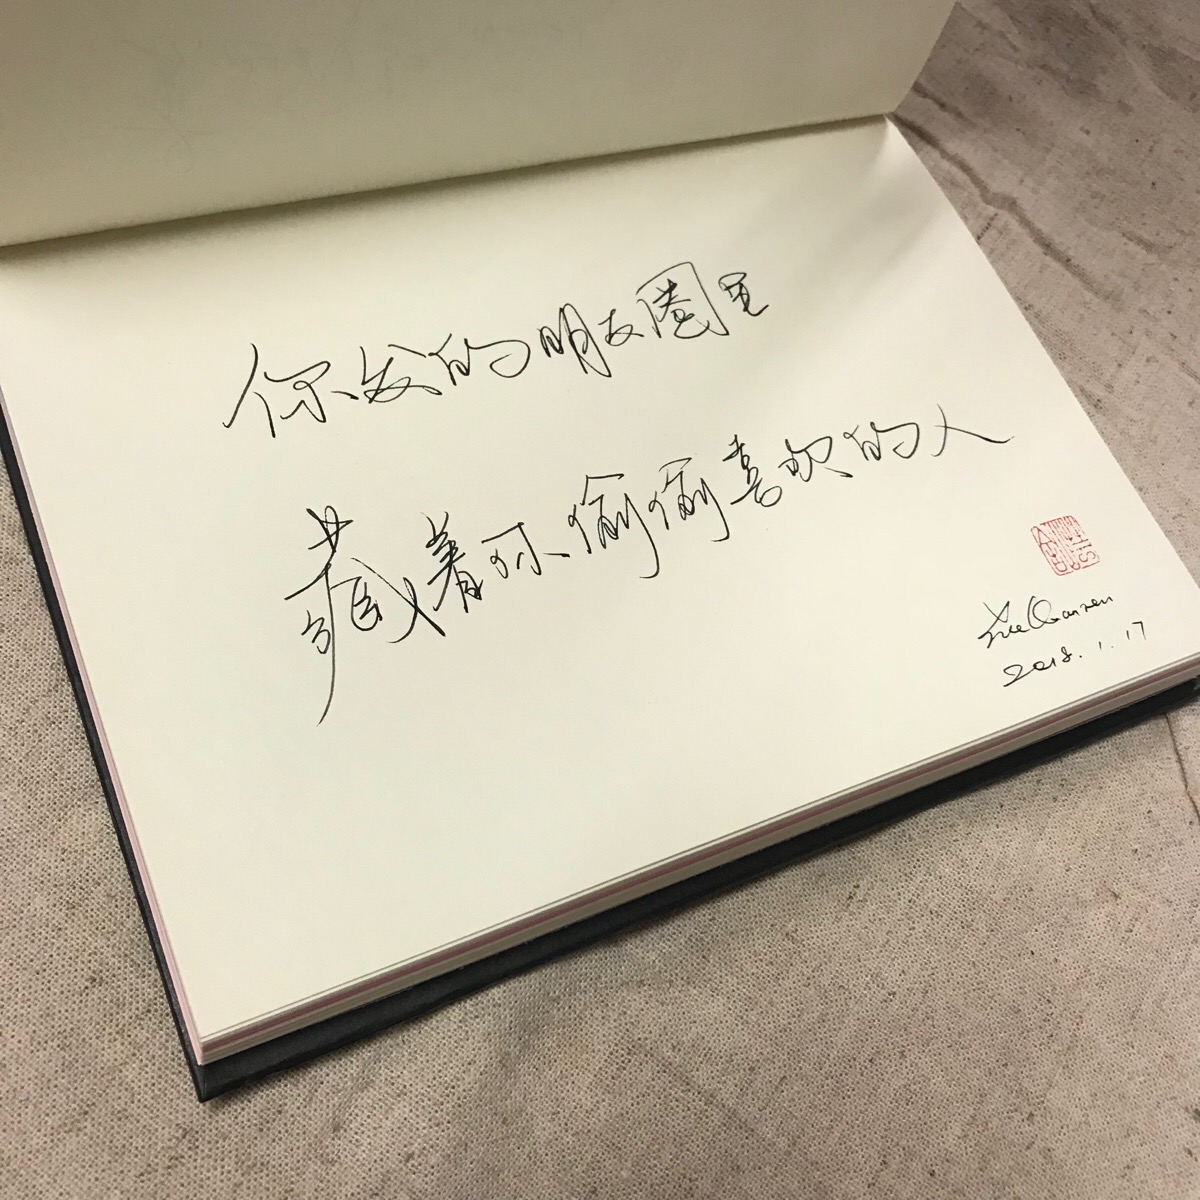 你发的朋友圈里
藏着你偷偷喜欢的人
2018.1.17